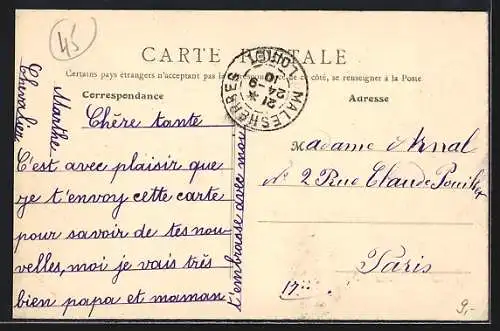 45
CARTE POSTALE
Certains pays étrangers n'acceptant pas la correspondance de ce côté, se renseigner à la Poste
Correspondance
Adresse
MALESHERBES
LOIRET
21 *
24 - 9
10
Chère tante
C'est avec plaisir que
je t'envoy cette carte
pour savoir de tes nou
velles, moi je vais très
bien papa et maman
t'embrasse avec moi
Marthe
Chevalier
Madame d'Arnal
N° 2 Rue Claude Pouillet
Paris
17
9,-